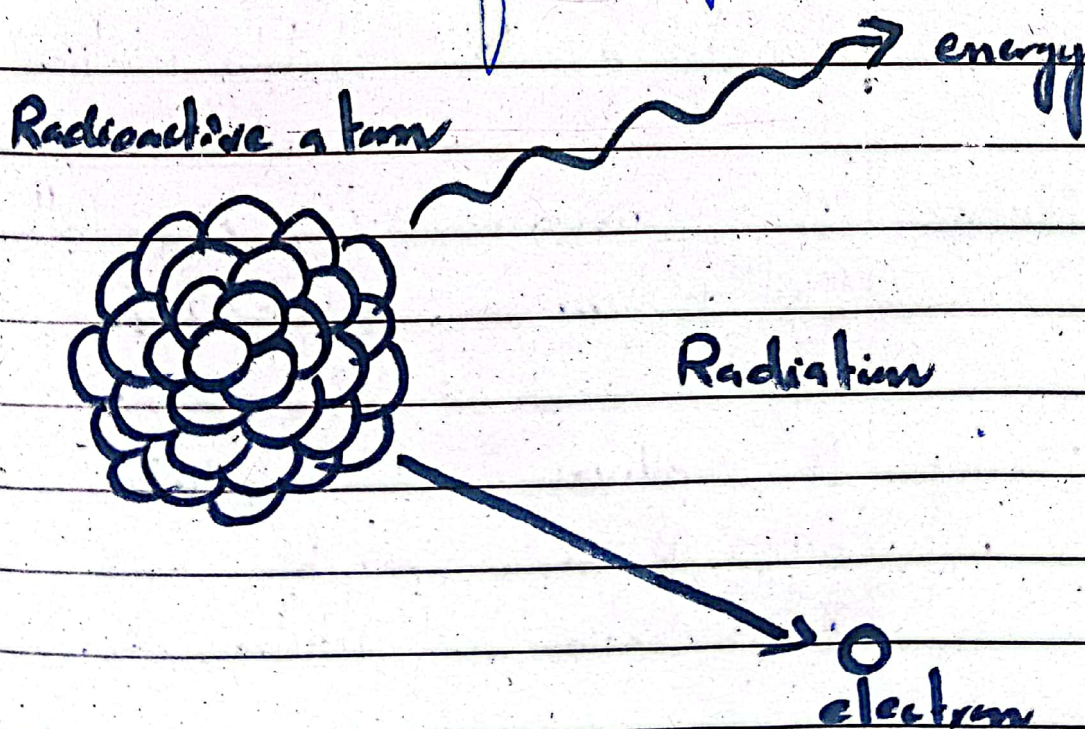 energy
Radioactive atom
Radiation
electron